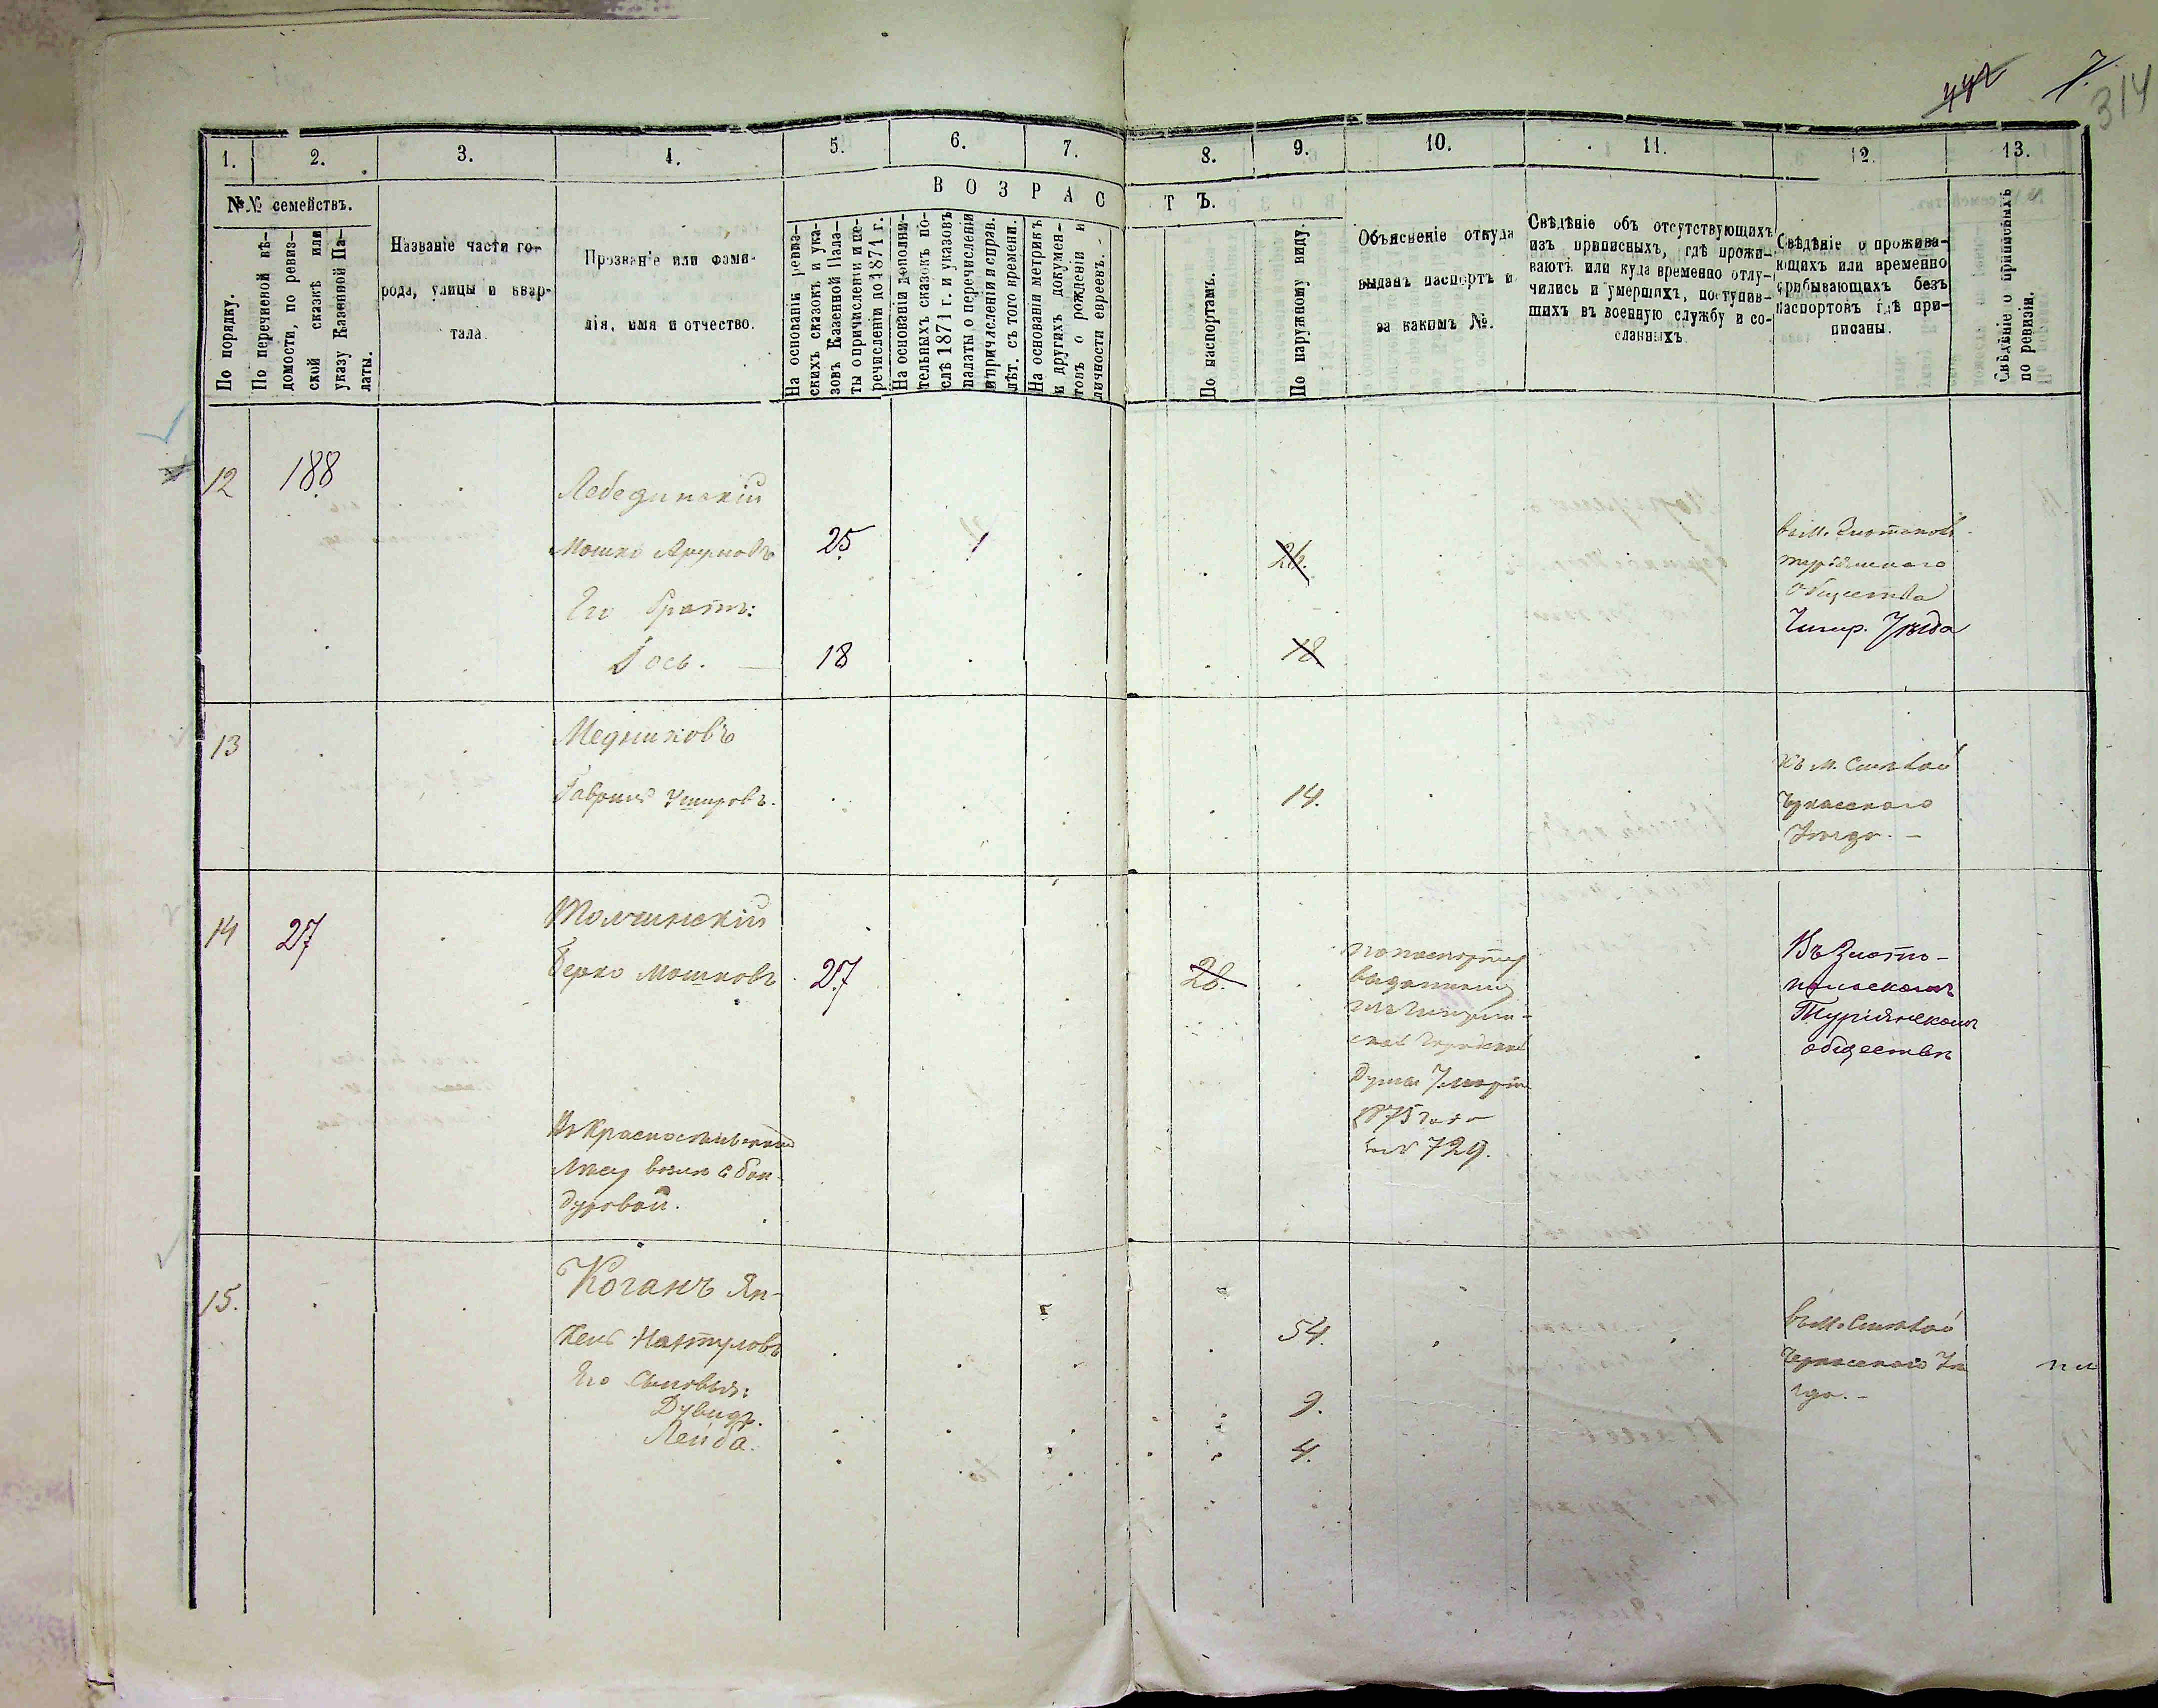 442 7. 314
1. 2. 3. 4. 5. 6. 7. 8. 9. 10. 11. 12. 13.
№№ семействъ.
ВОЗРАСТЪ.
По порядку.
По перечневой вѣ-
домости, по ревиз-
ской сказкѣ или
указу Казенной Па-
латы.
Названіе части го-
рода, улицы и квар-
тала.
Прозваніе или фами-
лія, имя и отчество.
На основаніи ревиз-
скихъ сказокъ и ука-
зовъ Казенной Пала-
ты о причисленіи и пе-
речисленіи до 1871 г.
На основаніи дополни-
тельныхъ сказокъ по-
слѣ 1871 г. и указовъ
палаты о перечисленіи
и причисленіи и справ.
лѣт. съ того времени.
На основаніи метрикъ
и другихъ докумен-
товъ о рожденіи и
личности евреевъ.
По паспортамъ.
По наружному виду.
Объясненіе откуда
выданъ паспортъ и
за какимъ №.
Свѣдѣніе объ отсутствующихъ
изъ приписныхъ, гдѣ прожи-
ваютъ или куда временно отлу-
чились и умершихъ, поступив-
шихъ въ военную службу и со-
сланныхъ.
Свѣдѣніе о прожива-
ющихъ или временно
прибывающихъ безъ
паспортовъ гдѣ при-
писаны.
Свѣдѣніе о приписныхъ
по ревизіи.
12 188
Лебединскій
Мошко Аруновъ 25 26.
Его братъ:
Іось. 18 18
въ М.
общества
Чигир. Уѣзда
13
Медниковъ
Гавріилъ Ушеровъ. 14.
въ М. Смѣлой
Черкасскаго
Уѣзда.
14 27
Толчинскій
Берко Мошковъ 27 28.
по паспорту
выданному
Думы 7 марта
1875 года
за № 729.
Въ Злато-
польскомъ
Туріянскомъ
обществѣ
Въ Красносельскомъ
лѣсу возле с Бон-
дуровой.
15.
Коганъ Ян-
кель Нафтуловъ 54.
Его сыновья:
Дувидъ. 9.
Лейба. 4.
въ М. Смѣлой
Черкасскаго Уѣ
зда.